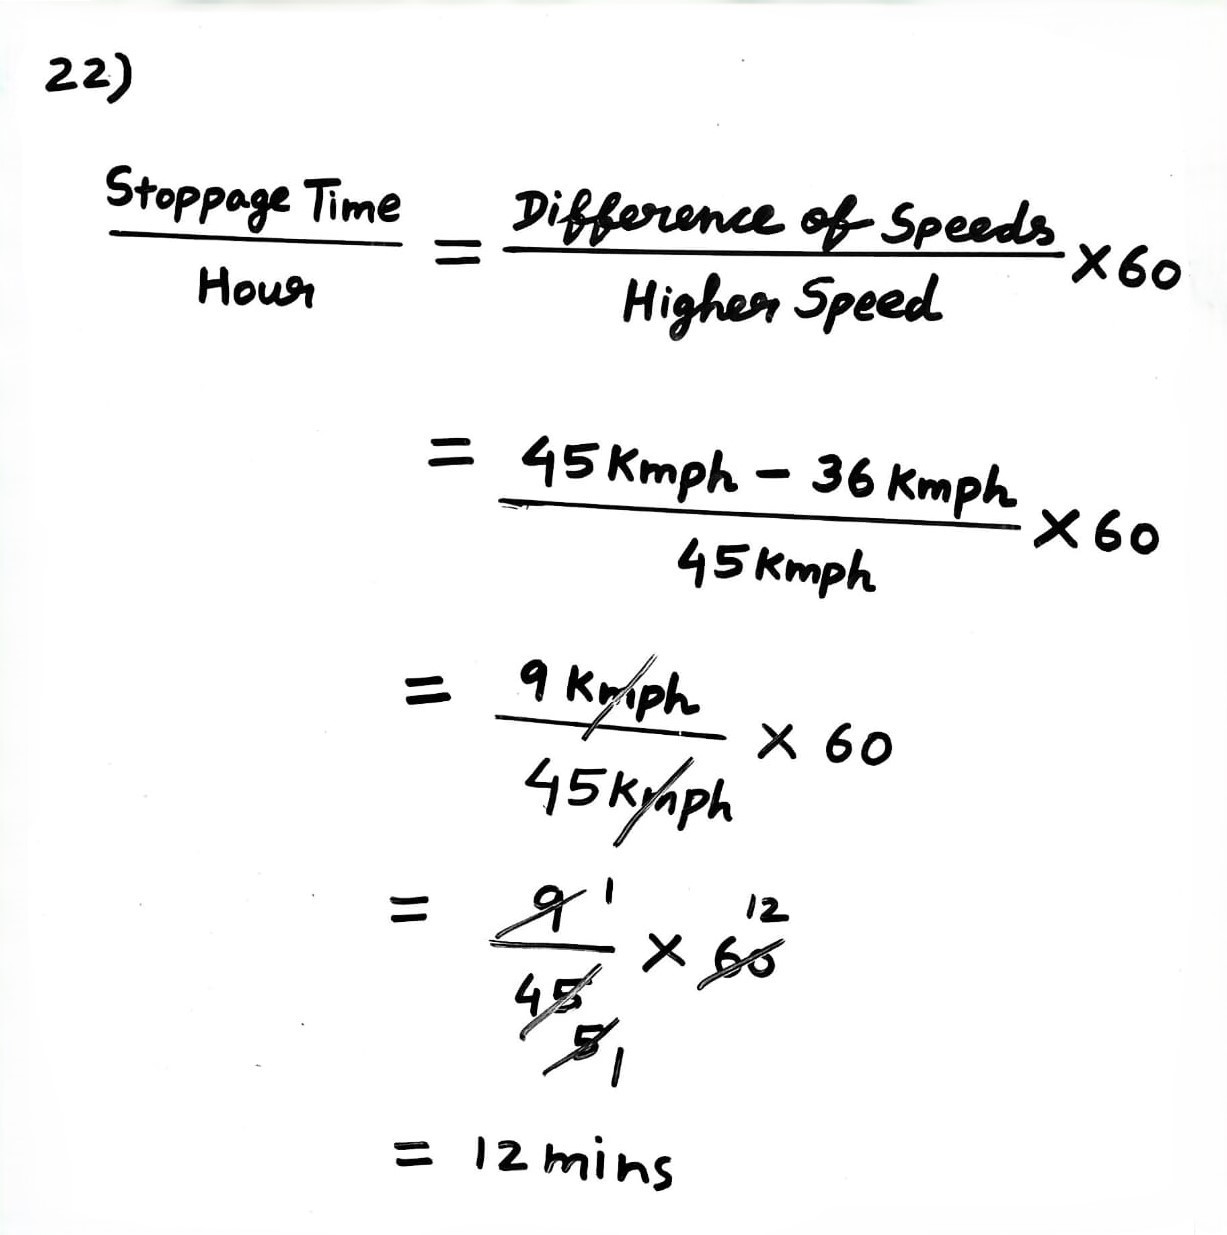 22)
Stoppage Time / Hour = Difference of Speeds / Higher Speed × 60
= 45 Kmph - 36 Kmph / 45 Kmph × 60
= 9 Kmph / 45 Kmph × 60
= 9 1 / 45 5 1 × 60 12
= 12 mins